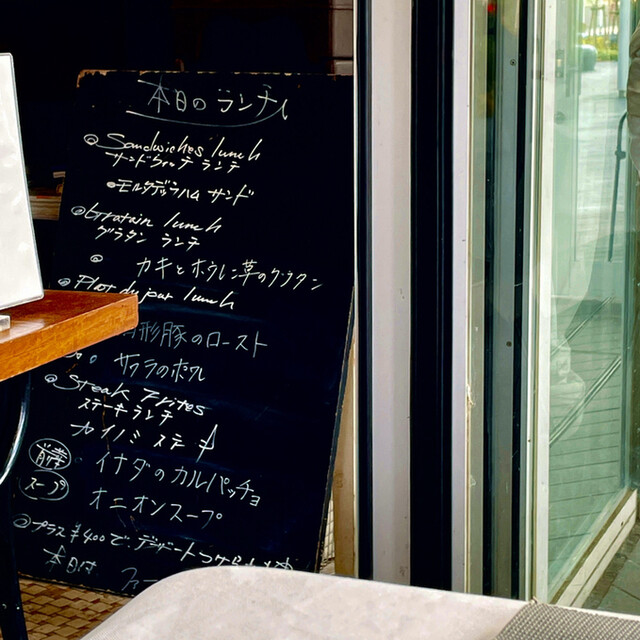 本日のランチ
Sandwiches lunch
サンドウィッチ ランチ
モルタデッラハム サンド
Gratain lunch
グラタン ランチ
カキとホウレン草のグラタン
Plat du jour lunch
形豚のロースト
サワラのポワレ
Steak Frites
ステーキランチ
カイノミ ステーキ
前菜 イナダのカルパッチョ
スープ オニオンスープ
プラス ¥400で、デザート
本日は